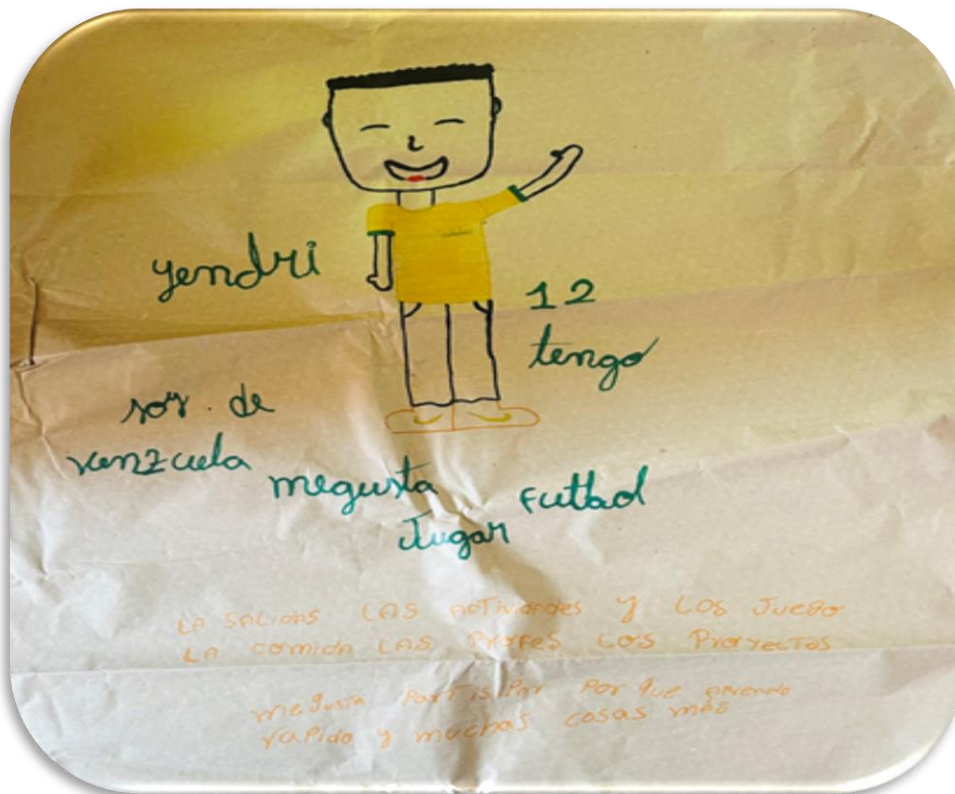 yendri
12
tengo
soy. de
venzuela
megusta
Jugar
Futbol
LA SALIDAS LAS ACTIVIDADES Y LOS JUEGO
LA COMIDA LAS PROFES LOS PROYECTOS
me gusta PARTISIPAR POR QUE APRENDO
RAPIDO y muchas cosas más